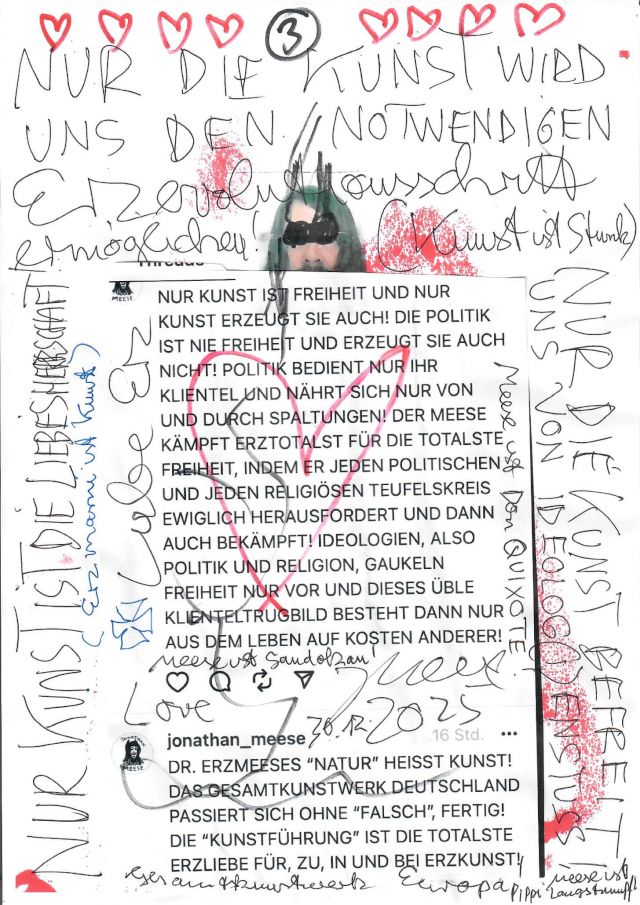 3
NUR DIE KUNST WIRD
UNS DEN NOTWENDIGEN
Erzevolutionsschritt
ermöglichen!
(Kunst ist Stunk)
Threads
MEESE
NUR KUNST IST FREIHEIT UND NUR
KUNST ERZEUGT SIE AUCH! DIE POLITIK
IST NIE FREIHEIT UND ERZEUGT SIE AUCH
NICHT! POLITIK BEDIENT NUR IHR
KLIENTEL UND NÄHRT SICH NUR VON
UND DURCH SPALTUNGEN! DER MEESE
KÄMPFT ERZTOTALST FÜR DIE TOTALSTE
FREIHEIT, INDEM ER JEDEN POLITISCHEN
UND JEDEN RELIGIÖSEN TEUFELSKREIS
EWIGLICH HERAUSFORDERT UND DANN
AUCH BEKÄMPFT! IDEOLOGIEN, ALSO
POLITIK UND RELIGION, GAUKELN
FREIHEIT NUR VOR UND DIESES ÜBLE
KLIENTELTRUGBILD BESTEHT DANN NUR
AUS DEM LEBEN AUF KOSTEN ANDERER!
Meese ist
Love
Meese
30.12.2025
jonathan_meese
16 Std.
JONATHAN
MEESE
DR. ERZMEESES “NATUR” HEISST KUNST!
DAS GESAMTKUNSTWERK DEUTSCHLAND
PASSIERT SICH OHNE “FALSCH”, FERTIG!
DIE “KUNSTFÜHRUNG” IST DIE TOTALSTE
ERZLIEBE FÜR, ZU, IN UND BEI ERZKUNST!
Gesamtkunstwerk Europa!
Meese ist
Pippi Langstrumpf!
NUR KUNST IST DIE LIEBESHERRSCHAFT
(Erzmami ist Kunst)
Liebe Erz
Meese ist Don QUIXOTE
NUR DIE KUNST BEFREIT
UNS VON IDEOLOGIEN